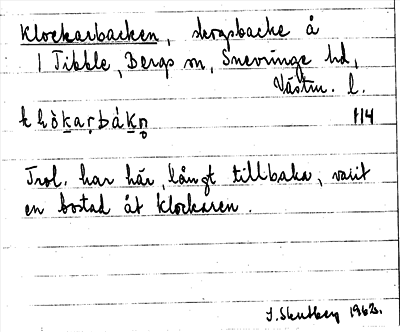 Klockarbacken, skogsbacke å
1 Tibble, Bergs sn, Snevringe hd,
Västm. l.
1114
Trol. har här, långt tillbaka, varit
en bostad åt klockaren.
1962.